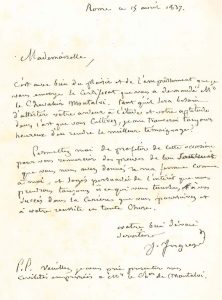 Rome ce 15 avril 1837.
Mademoiselle,
C'est avec bien du plaisir et de l'empressement que je
vous envoye le Certificat que vous a demandé Mr
le Chevalier Montalvi.
d'attester votre ardeur à l'étude et votre aptitude
dans l'art que vous cultivez, je me trouverai toujours
heureux d'en rendre le meilleur témoignage.
Permettez moi de profiter de cette occasion
pour vous remercier des preuves de bon
que vous nous avez données, je vous
à moi, et soyez persuadée de l'intérêt que nous
prendrons toujours à ce qui vous touche, à vos
succès dans la Carrière que vous parcourez et
à votre réussite en toute Chose.
votre bien dévoué
serviteur
J. Ingres
P.S. Veuillez, je vous prie présenter mes
civilités empressées à Mr le Chr de Montalvi,